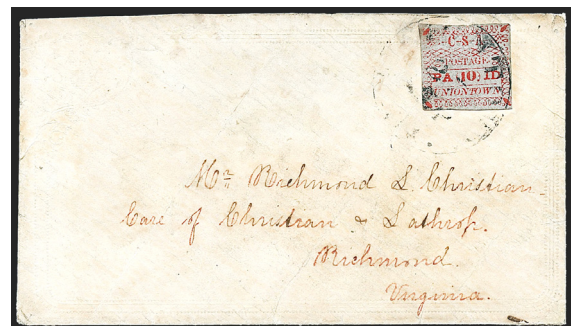 C-S-A
POSTAGE
PA 10 ID
UNIONTOWN
Mr Richmond L. Christian
Care of Christian & Lathrop.
Richmond.
Virginia.